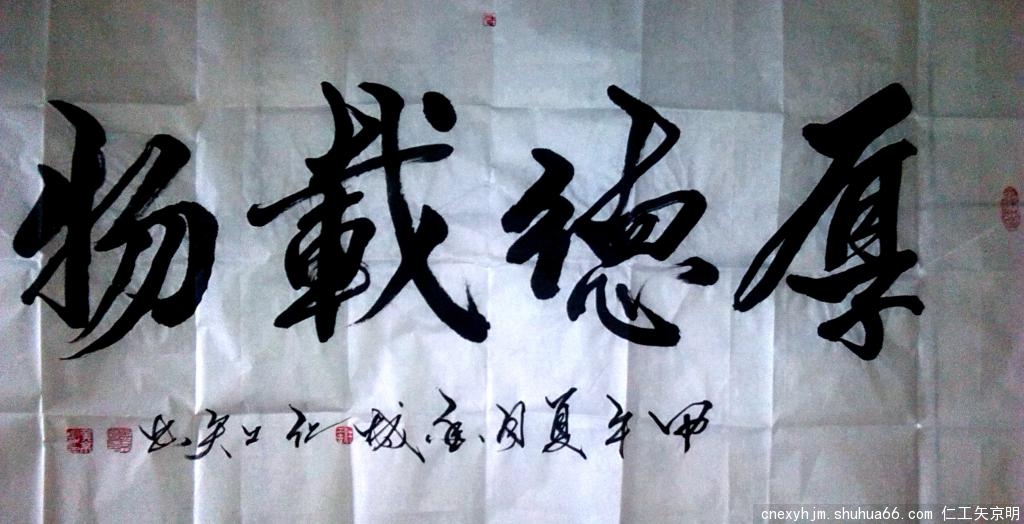 厚德載物
甲午夏月 仁工矢 書
cnexyhjm.shuhua66.com 仁工矢京明